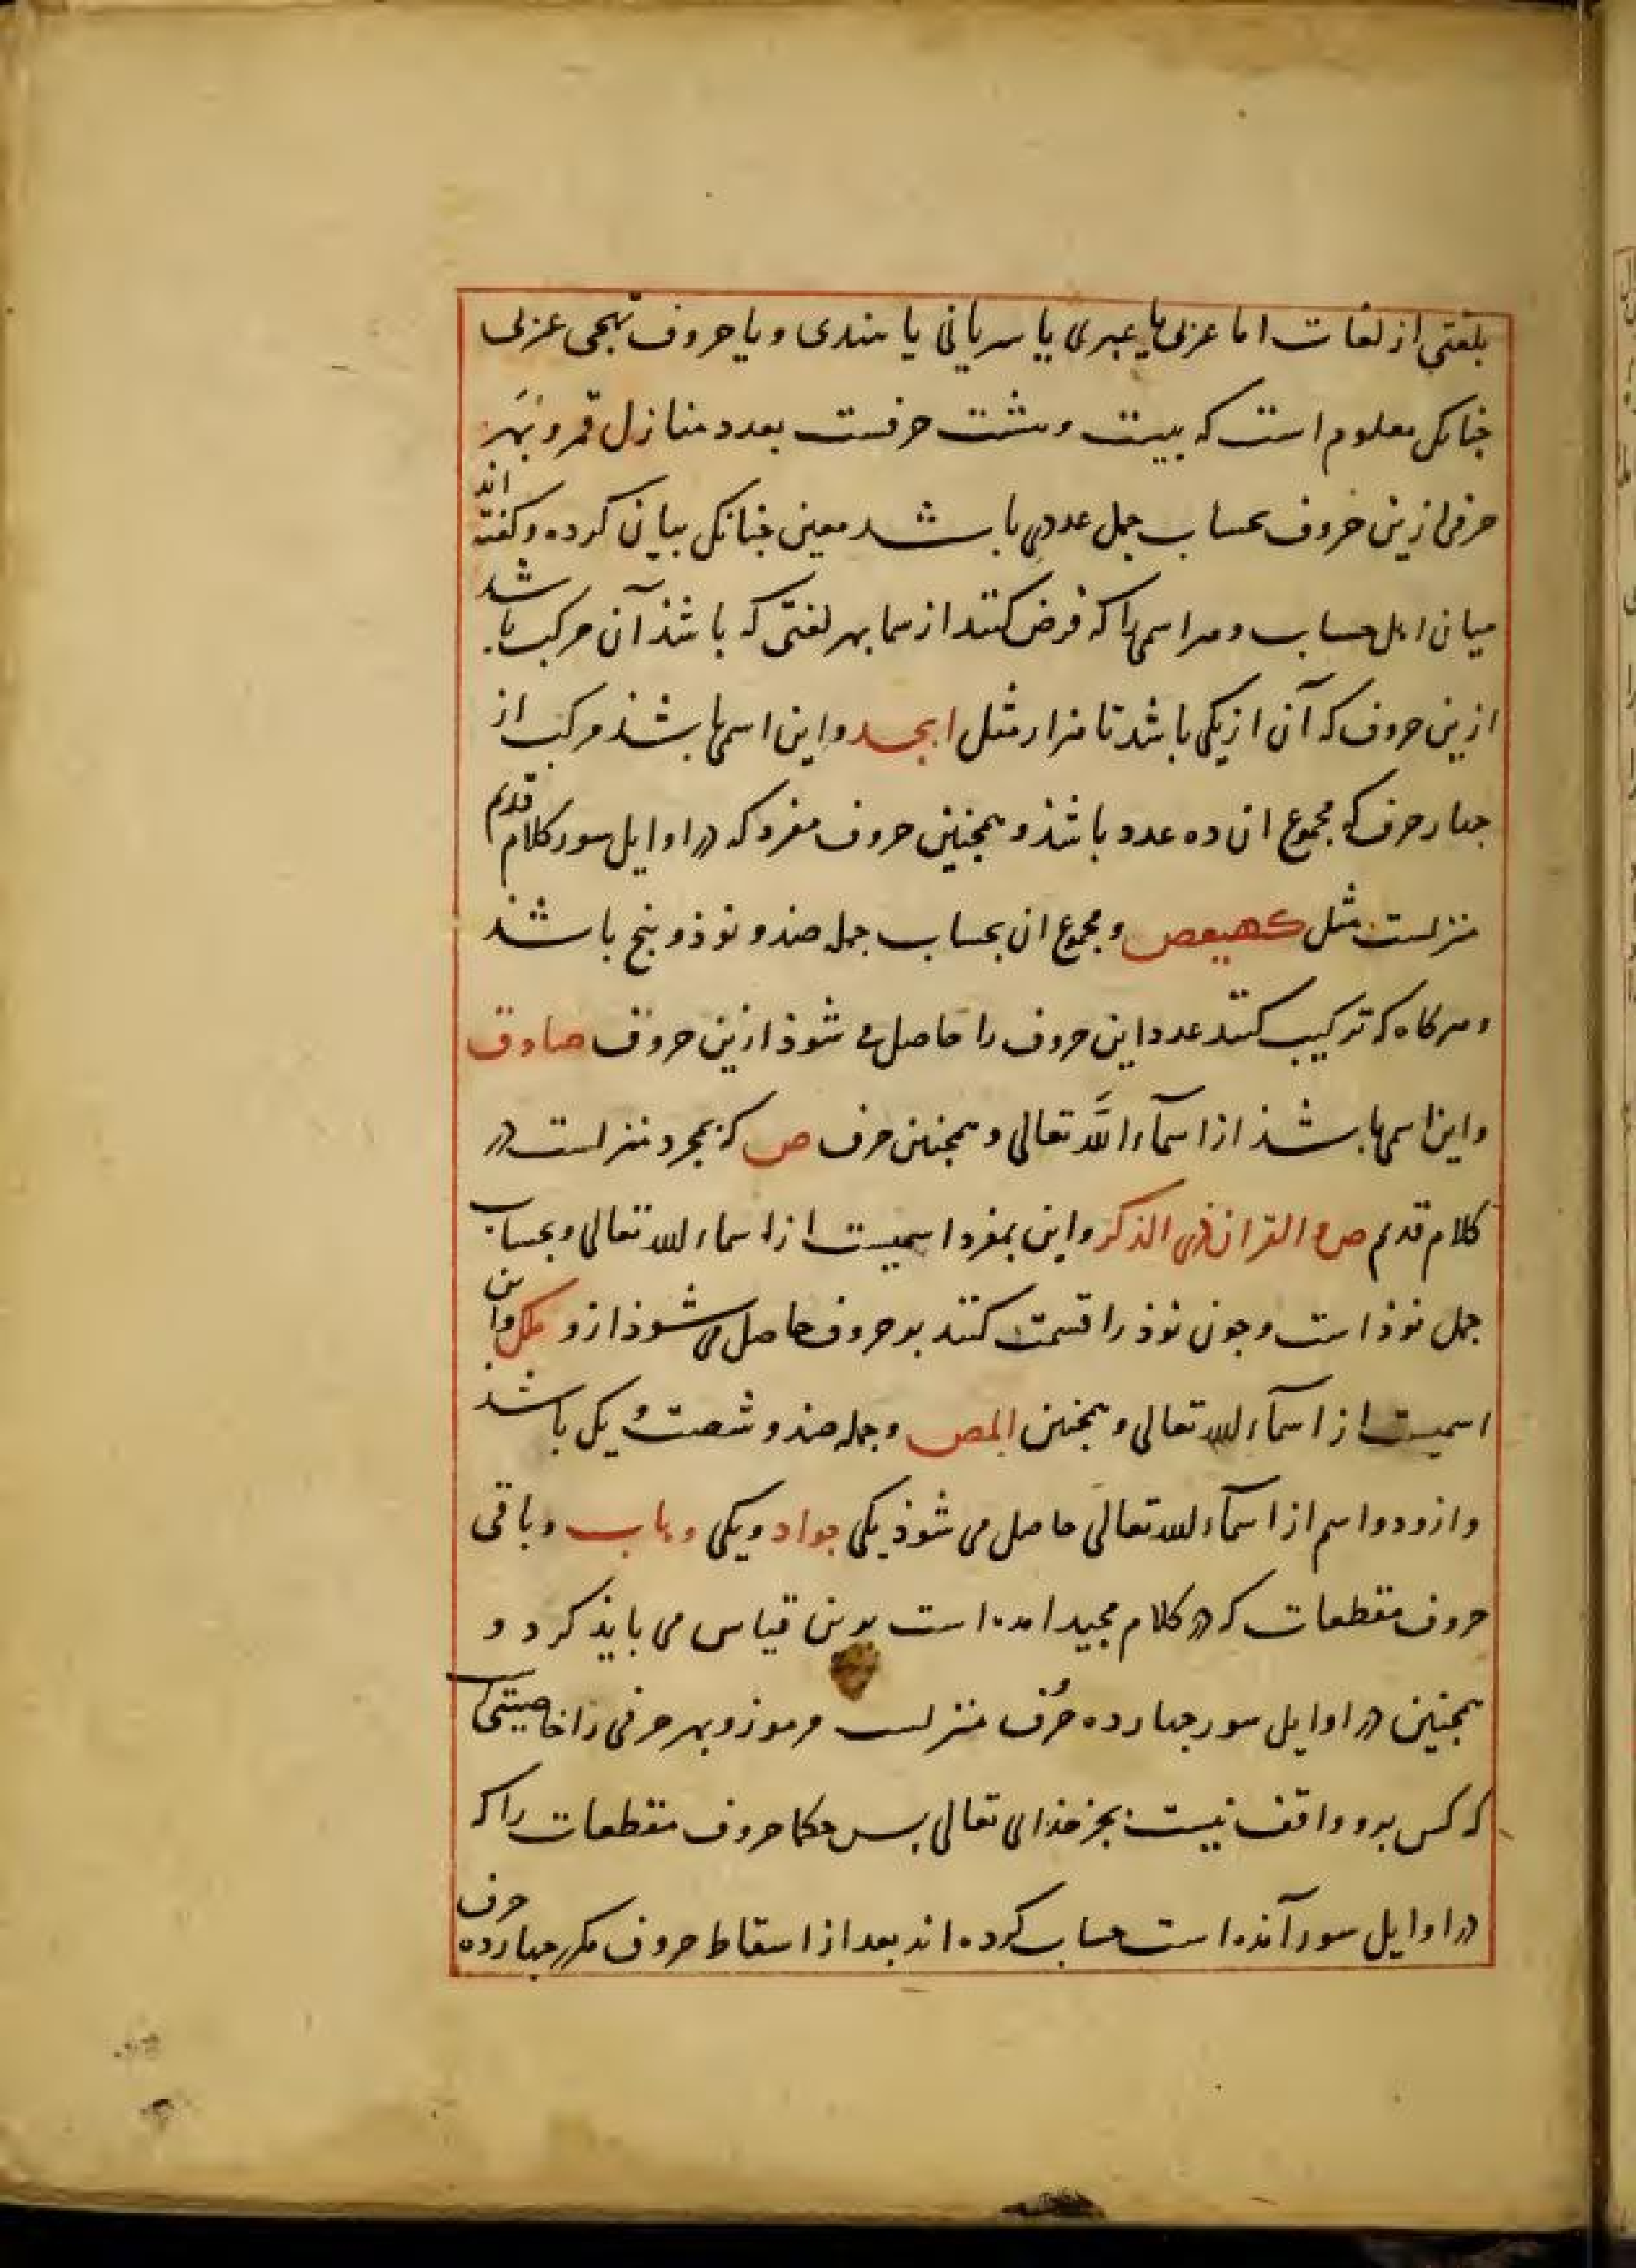 بلغتی از لغات اما عربی یا عبری یا سریانی یا هندی و یا حروف تهجی عربی
جنانکه معلوم است که بیست و هشت حرفست بعدد منازل قمر و بهر
حرفی ازین حروف بحساب جمل عددی باشد معین جنانکه بیان کرده و کفته اند
میان اهل حساب و هر اسمی را که فرض کنند از سما بهر لغتی که باشذ آن مرکب باشد
ازین حروف که آن از یکی باشد تا هزار مثل ابجد و این اسمی باشذ مرکب از
جهار حرف که مجموع ان ده عدد باشذ و همجنین حروف مفرد که در اوایل سور کلام قدیم
منزلست مثل کهیعص و مجموع ان بحساب جمله صذ و نوذ و بنج باشذ
و هرکاه که ترکیب کنند عدد این حروف را حاصل می شوذ ازین حروف صادق
و این اسمی باشذ از اسمآء الله تعالی و همجنین حرف ص که بمجرد منزلست در
کلام قدیم ص و القران ذی الذکر و این بمفرد اسمیست از اسماء الله تعالی و بحساب
جمل نوذ است و جون نوذ را قسمت کنند بر حروف حاصل می شوذ ازو ملک و این
اسمیست از اسمآء الله تعالی و همجنین المص و جمله صذ و شصت و یکی باشذ
و ازو دو اسم از اسمآء الله تعالی حاصل می شوذ یکی جواد و یکی وهاب و باقی
حروف مقطعات که در کلام مجید امده است برین قیاس می بایذ کرد و
همجنین در اوایل سور جهارده حرف منزلست مرموز و بهر حرفی را خاصیتی است
که کس برو واقف نیست بجز خذای تعالی بس حکما حروف مقطعات را که
در اوایل سور آمذه است حساب کرده اند بعد از اسقاط حروف مکرر جهارده حرف